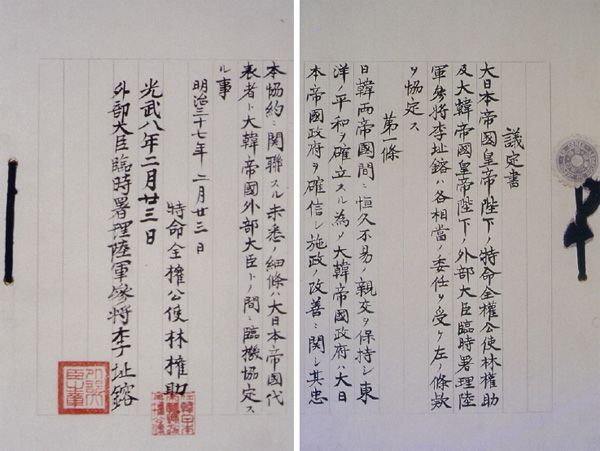 議定書
大日本帝國皇帝陛下ノ特命全權公使林權助
及大韓帝國皇帝陛下ノ外部大臣臨時署理陸
軍參將李址鎔ハ各相當ノ委任ヲ受ケ左ノ條款
ヲ協定ス
第一條
日韓両帝國間ニ恒久不易ノ親交ヲ保持シ東
洋ノ平和ヲ確立スル為メ大韓帝國政府ハ大日
本帝國政府ヲ確信シ施政ノ改善ニ関シ其忠
本協約ニ関聯スル未悉ノ細條ハ大日本帝國代
表者ト大韓帝國外部大臣トノ間ニ臨機協定ス
ル事
明治三十七年二月廿三日
特命全權公使林權助
光武八年二月廿三日
外部大臣臨時署理陸軍參將李址鎔